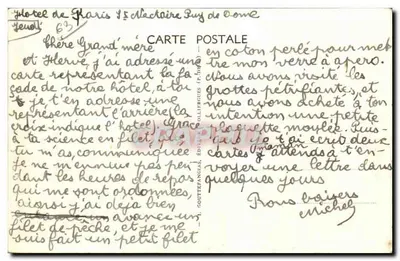 Hotel de Paris St Nectaire Puy de Dome
Jeudi
63
CARTE POSTALE
Chère Grand'mère
A Hervé, j'ai adressé une
carte représentant la fa
çade de notre hôtel, à toi
je t'en adresse une
représentant l'arrière la
croix indique l'hôtel. Grâce
à la science en
m'as communiquée
je ne m'ennuie pas pen
dant les heures de repos
qui me sont ordonnées,
ainsi j'ai déjà bien
avancé un
filet de pêche, et je me
suis fait un petit filet
en coton perlé pour met
tre mon verre à apéro.
Nous avons visité les
grottes pétrifiantes, et
nous avons acheté à ton
intention une petite
plaquette moulée. Puis
que je j'ai écrit deux
cartes maman j'attends à t'en
voyer une lettre dans
quelques jours
Bons baisers
Michel